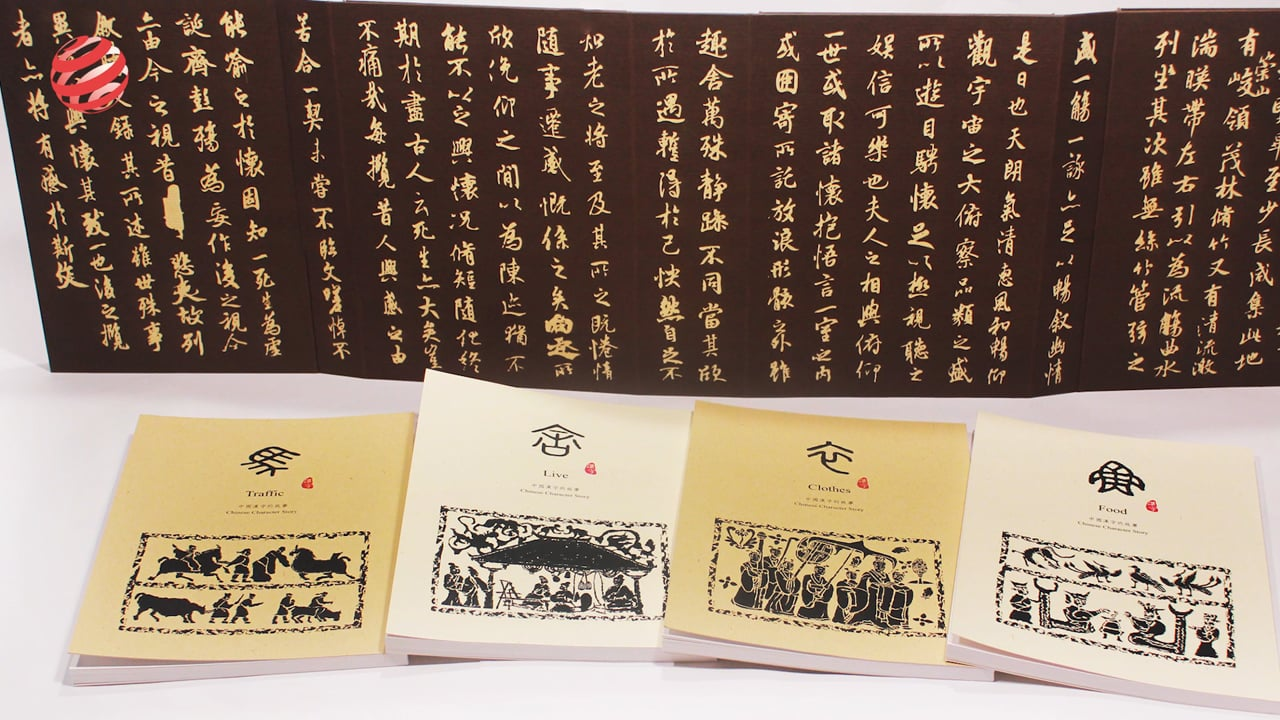 畢至少長咸集此地
有崇山峻領茂林脩竹又有清流激
湍暎帶左右引以為流觴曲水
列坐其次雖無絲竹管弦之
盛一觴一詠亦足以暢叙幽情
是日也天朗氣清惠風和暢仰
觀宇宙之大俯察品類之盛
所以遊目騁懷足以極視聽之
娛信可樂也夫人之相與俯仰
一世或取諸懷抱悟言一室之內
或因寄所託放浪形骸之外雖
趣舍萬殊静躁不同當其欣
於所遇暫得於己怏然自足不
知老之將至及其所之既惓情
隨事遷感慨係之矣向之所
欣俛仰之間以為陳迹猶不
能不以之興懷況脩短隨化終
期於盡古人云死生亦大矣豈
不痛哉每攬昔人興感之由
若合一契未嘗不臨文嗟悼不
能喻之於懷固知一死生為虛
誕齊彭殤為妄作後之視今
亦由今之視昔悲夫故列
叙人錄其所述雖世殊事
異興懷其致一也後之攬
者亦將有感於斯文
馬
Traffic
中國漢字的故事
Chinese Character Story
舍
Live
中國漢字的故事
Chinese Character Story
衣
Clothes
中國漢字的故事
Chinese Character Story
食
Food
中國漢字的故事
Chinese Character Story